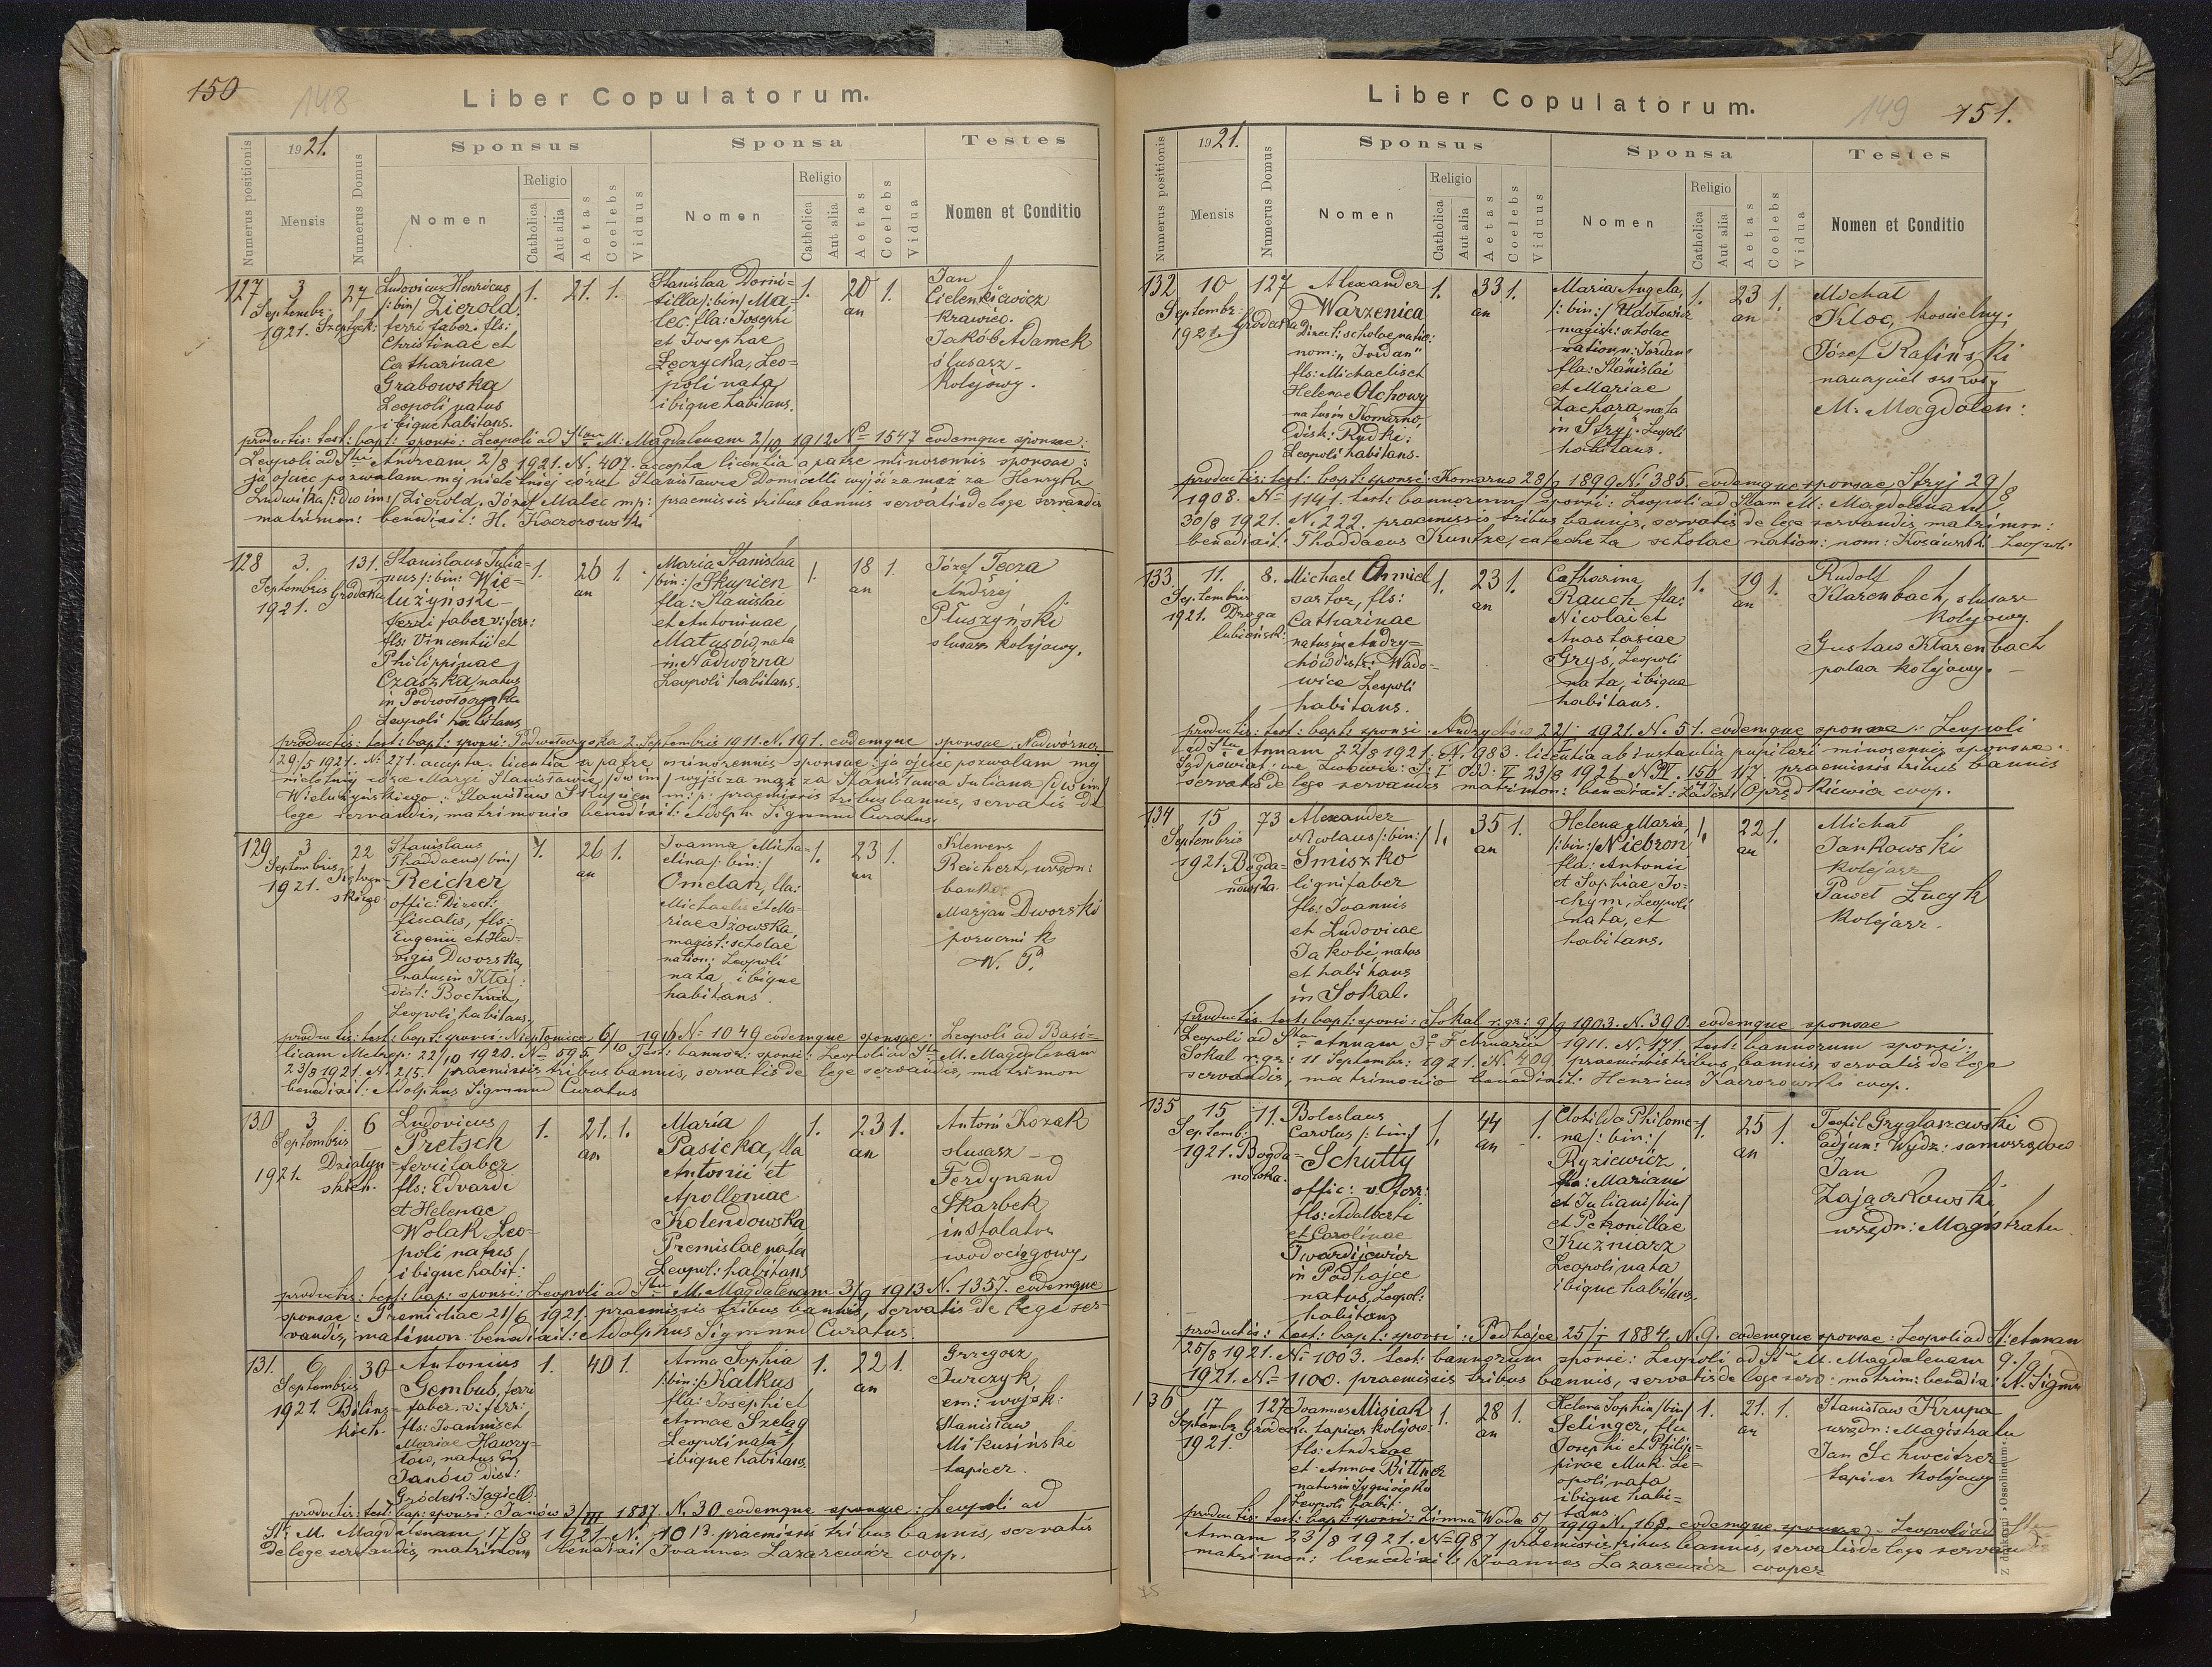 150
148
Liber Copulatorum.
Numerus positionis
1921.
Mensis
Numerus Domus
Sponsus
Nomen
Religio
Catholica
Aut alia
Aetas
Coelebs
Viduus
Sponsa
Nomen
Religio
Catholica
Aut alia
Aetas
Coelebs
Vidua
Testes
Nomen et Conditio
127
3
Septembr.
1921. Szeptyck:
27
Ludovicus Henricus
/:bin/ Zierold,
ferri faber: fls:
Christinae et
Catharinae
Grabowska
Leopoli natus
ibique habitans.
1. 21. 1.
Stanislaa Domi-
tilla/:bin/ Ma-
lec. fla: Josephi
et Josephae
Łęczycka, Leo-
poli nata
ibique habitans.
1. 20 an 1.
Jan
krawiec.
Jakób Adamek
ślusarz
kolejowy.
productis: test: bapt: sponsi: Leopoli ad Stam M: Magdalenam 2/10 1912 No 1547 eodemque sponsae:
Leopoli ad Sti Andream 2/8 1921. N. 407. accepta licentia a patre minorennis sponsae:
ja ojciec pozwalam mej nieletniej córce Stanisławie Domicelli wyjść za mąż za Henryka
Ludwika/:dw im:/ Zierold. Józef Malec mp: praemissis tribus bannis servatis de lege servandis
matrimon: benedixit: H. Kaczorowski
128
3.
Septembris
1921.
131.
Gródeka
Stanislaus Julia-
nus/:bin: Wie-
lużyński
ferri faber v: ferr:
fls: Vincentii et
Philippinae
Czaszka, natus
in Podwołoczyska
Leopoli habitans
1. 26 an 1.
Maria Stanislaa
/bin:/ Skupien
fla: Stanislai
et Antoninae
Matusów, nata
in Nadwórna
Leopoli habitans.
1. 18 an 1.
Józef Tecza
Andrzej
Pluszyński
slusarz kolejowy.
productis: test: bapt: sponsi: Podwołoczyska 2. Septembris 1911. N. 191. eodemque sponsae: Nadwórna
29/5 1921. N. 271. accepta licentia a patre minorennis sponsae: ja ojciec pozwalam mej
nieletniej córce Maryi Stanisławie /dw im/ wyjść za mąż za Stanisława Juliana /dw im/
Wielużyńskiego: Stanisław Skupien m: p: praemissis tribus bannis, servatis de
lege servandis, matrimonio benedixit: Adolph. Sigmund Curatus.
129
3
Septembris
1921.
22
Stanislaus
Thaddaeus/bin/
Reicher
offic: Direct:
fiscalis, fls:
Eugenii et Hed-
vigis Dworska,
natus in Kłaj:
dist: Bochnia,
Leopoli habitans.
1. 26 an 1.
Joanna Micha-
elina/:bin:/
Omelan, fla:
Michaelis et Ma-
riae Iżowska,
magist: scholae
nation: Leopoli
nata ibique
habitans.
1. 23 an 1.
Klemens
Reichert, urzędn:
bank.
Maryan Dworski
porucznik
W. P.
productis: test: bapt: sponsi: Niepołomice 6/10 1916 N. 1049 eodemque sponsae: Leopoli ad Basi-
licam Metrop: 22/10 1920. No 595. Test: bannor: sponsi: Leopoli ad Stam M. Magdalenam
23/8 1921. N. 215. praemissis tribus bannis, servatis de lege servandis, matrimon
benedixit: Adolphus Sigmund Curatus
130
3
Septembris
1921.
6
Działyn-
skich.
Ludovicus
Pretsch
ferri faber
fls: Edvardi
et Helenae
Wolak Leo-
poli natus
ibique habit:
1. 21. an 1.
Maria
Pasicka, fla
Antonii et
Apolloniae
Kolendowska
Premislae nata
Leopol: habitans
1. 23 an 1.
Antoni Kozak
slusarz
Ferdynand
Skarbek
instalator
wodociągowy.
productis: test: bap: sponsi: Leopoli ad Stam M. Magdalenam 3/9 1913 N. 1357. eodemque
sponsae: Premisliae 21/6 1921. praemissis tribus bannis, servatis de lege ser-
vandis, matrimon benedixit: Adolphus Sigmund Curatus.
131.
6
Septembris
1921.
30
Bilins-
kich.
Antonius
Gembus, ferri
faber. v: ferr:
fls: Joannis et
Mariae Hawry-
łow, natus in
Janów dist:
Gródek: Jagiell:
1. 40 1.
Anna Sophia
/:bin:/ Kalkus
fla: Josephi et
Annae Szeląg
Leopoli nata
ibique habitans
1. 22 an 1.
Grzegorz
Jurczyk
em: wojsk:
Stanisław
Mikusiński
tapicer.
productis: test: bap: sponsi: Janów 3/III 1887. N. 30 eodemque sponsae: Leopoli ad
St. M. Magdalenam 17/8 1921. N. 1013. praemissis tribus bannis, servatis
de lege servandis, matrimon benedixit Joannes Lazarewicz coop.
149
151.
Liber Copulatorum.
Numerus positionis
1921.
Mensis
Numerus Domus
Sponsus
Nomen
Religio
Catholica
Aut alia
Aetas
Coelebs
Viduus
Sponsa
Nomen
Religio
Catholica
Aut alia
Aetas
Coelebs
Vidua
Testes
Nomen et Conditio
132
10
Septembr:
1921.
127
Grodecka
Alexander
Warzenica
Direct: scholae natio:
nom: „Jordan"
fls: Michaelis et
Helenae Olchowy
natus in Komarno,
distr: Rudki:
Leopoli habitans.
1. 33 an 1.
Maria Angela,
/:bin:/
magistr: scholae
nation n: Jordan
fla: Stanislai
et Mariae
Zachara, nata
in Stryj. Leopoli
habitans.
1. 23 an 1.
Michał
Kloc, kościelny;
Józef Rafiński
nauczyciel szkoły
M. Magdalen:
productis: test: bapt: sponsi: Komarno 28/9 1899 N. 385. eodemque sponsae, Stryj 29/8
1908. No 1141. test: bannorum sponsi: Leopoli ad Stam M: Magdalenam
30/8 1921. N. 222. praemissis tribus bannis, servatis de lege servandis matrimon:
benedixit: Thaddaeus Kuntze, catecheta scholae nation: nom: Leopoli
133.
11.
Septembris
1921.
8.
Droga
lubieńsk:
Michael Chmiel
sartor, fls:
Catharinae
natus in Andry-
chów distr: Wado-
wice Leopoli
habitans.
1. 23 an 1.
Catharina
Rauch fla:
Nicolai et
Anastasiae
Gryś, Leopoli
nata, ibique
habitans.
1. 19 an 1.
Rudolf
Klarenbach, slusarz
kolejowy.
Gustaw Klarenbach
palacz kolejowy.
productis: test: bapt: sponsi Andrychów 22/ 1921. N. 51. eodemque sponsae: Leopoli
ad Stam Annam 22/8 1921. N. 983. licentia ab instantia pupilari minorennis sponsae:
Sąd powiat: we Lwowie: S: I Odd: V 23/8 1921 praemissis tribus bannis
servatis de lege servandis matrimon: benedixit: coop.
134
15
Septembris
1921.
73
Bogda-
nówka.
Alexander
Nicolaus/:bin:/
Smiszko
lignifaber
fls: Joannis
et Ludovicae
Jakobi, natus
et habitans
in Sokal.
1. 35 an 1.
Helena Maria,
/:bin:/ Niebron
fla: Antonii
et Sophiae Jo-
chym, Leopoli
nata, et
habitans.
1. 22 an 1.
Michał
Jankowski
kolejarz
Paweł Łucyk
kolejarz.
productis: test: bapt: sponsi: Sokal r. gr: 9/9 1903. N. 390. eodemque sponsae
Leopoli ad Stam Annam, 3o Februarii 1911. N. 171. test: bannorum sponsi:
Sokal r. gr: 11 Septembr: 1921. N. 409. praemissis tribus bannis, servatis de lege
servandis, matrimonio benedixit: Henricus Kaczorowski coop.
135
15
Septemb:
1921.
11.
Bogda-
nówka.
Boleslaus
Carolus /:bin/
Schutty
offic: v. ferr:
fls: Adalberti
et Carolinae
Twardijewicz
in Podhajce
natus, Leopol:
habitans
1. 44 an 1.
Clotilda Philome-
na/:bin:/
Ryziewicz
fla: Mariani
et Juliani/bin/
et Petronillae
Kuźniarz
Leopoli nata
ibique habitans.
1. 25 an 1.
Teofil Gryglaszewski
adjun: Wydz: samorządow
Jan
Zajączkowski
urzędn: Magistratu
productis: test: bapt: sponsi: Podhajce 25/I 1884. N. 9. eodemque sponsae: Leopoli ad St: Annam
25/8 1921. No 1003. test: bannorum sponsi: Leopoli ad Stam M. Magdalenam 9/9
1921. No 1100. praemissis tribus bannis, servatis de lege serv: matrim: benedix: A. Sigmu
136
17
Septembr.
1921.
127
Gródeck.
Joannes Misiak
tapicer kolejow:
fls: Andreae
et Annae Bittner
natus in
Leopoli habit:
1. 28 an 1.
Helena Sophia/bin/
Selinger, fla
Josephi et Philip-
pinae Muk. Le-
opoli nata
ibique habi-
tans
1. 21. an 1.
Stanisław Krupa
urzędn: Magistratu
Jan Schweitzer
tapicer kolejowy
productis: test: bapt: sponsi: Zimna Woda 5/9 1919 N. 168. eodemque sponsae: Leopoli ad Stam
Annam 23/8 1921. No 987 praemissis tribus bannis, servatis de lege servan
matrimon: benedixit: Joannes Lazarewicz cooper
Z drukarni »Ossolineum«
75